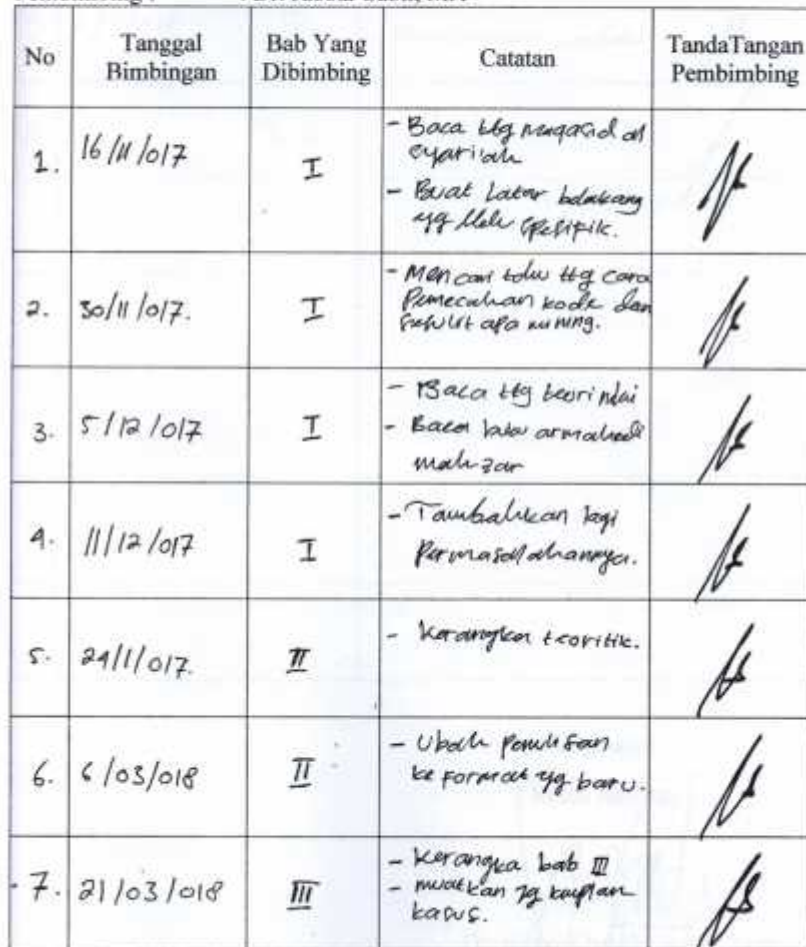 No
Tanggal Bimbingan
Bab Yang Dibimbing
Catatan
TandaTangan Pembimbing
1. 16/11/017 I
- Baca ttg maqasid al
syariah
- Buat Latar belakang
yg lebih spesifik.
2. 30/11/017. I
- Mencari tahu ttg cara
Pemecahan kode dan
sesulit apa mining.
3. 5/12/017 I
- Baca ttg teori nilai
- Baca armahedi
mahzar
4. 11/12/017 I
- Tambahkan lagi
Permasalahannya.
5. 24/1/017. II
- Kerangka teoritik.
6. 6/03/018 II
- Ubah Penulisan
ke format yg baru.
7. 21/03/018 III
- Kerangka bab III
- kasus.